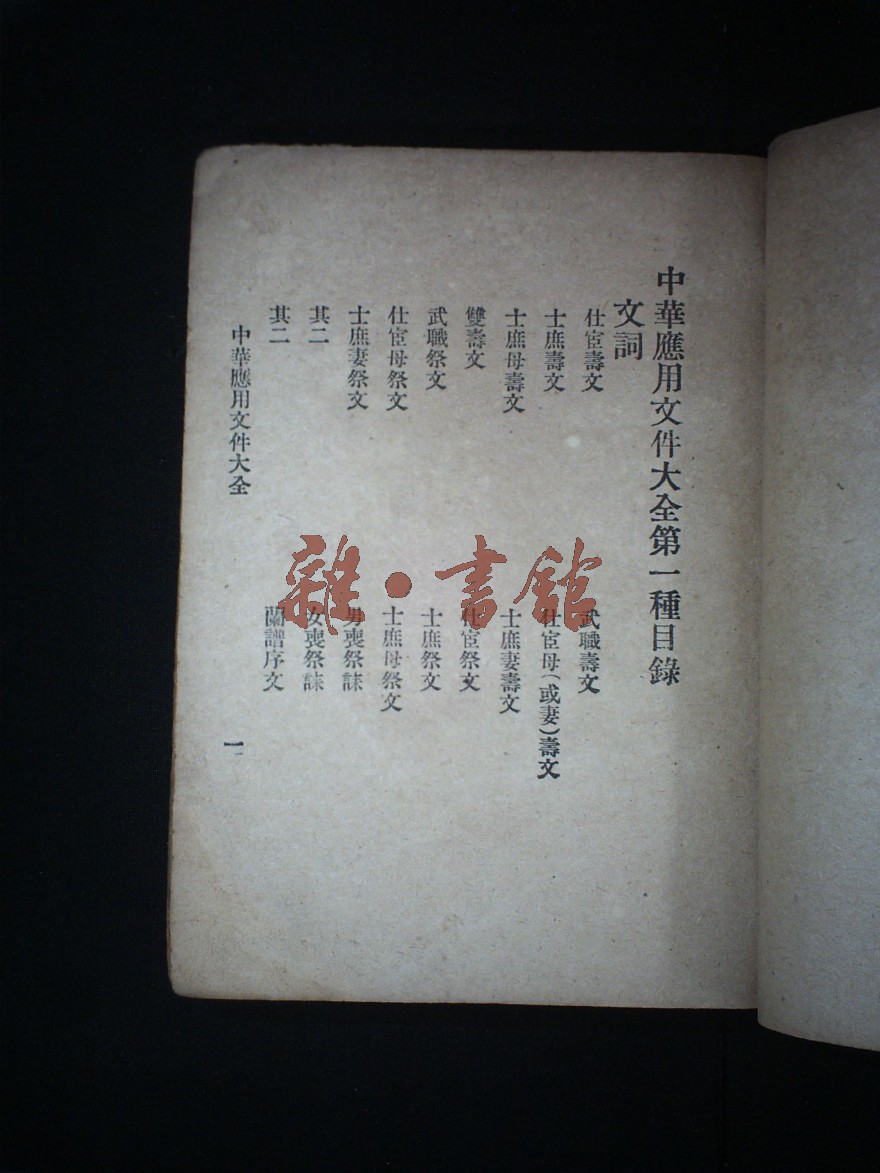 中華應用文件大全第一種目錄
文詞
仕宦壽文
武職壽文
士庶壽文
仕宦母(或妻)壽文
士庶母壽文
士庶妻壽文
雙壽文
仕宦祭文
武職祭文
士庶祭文
仕宦母祭文
士庶母祭文
士庶妻祭文
男喪祭誄
其二
女喪祭誄
其二
蘭譜序文
中華應用文件大全
一
雜·書館